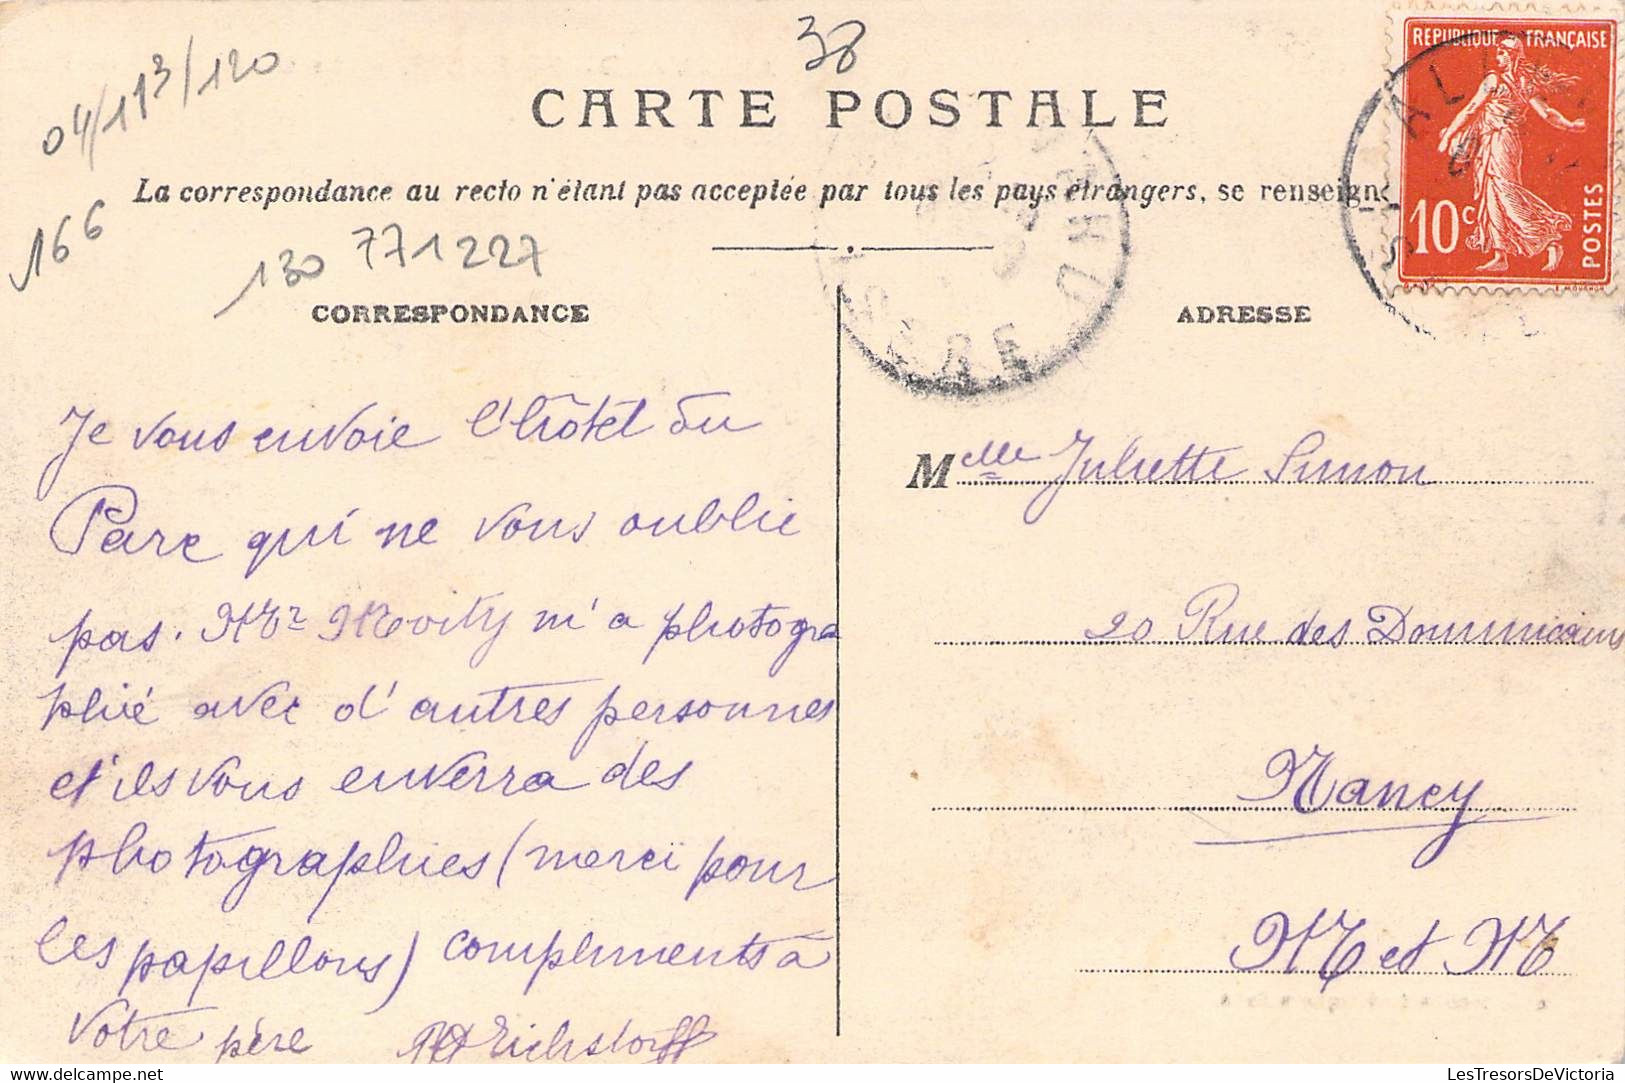 38
04/113/120
CARTE POSTALE
REPUBLIQUE FRANÇAISE
10c
POSTES
La correspondance au recto n'étant pas acceptée par tous les pays étrangers, se renseign
166
130 771227
CORRESPONDANCE
ADRESSE
Je vous envoie l'hôtel du
Parc qui ne vous oublie
pas. Mr m'a photogra
phié avec d'autres personnes
et ils vous enverra des
photographies (merci pour
les papillons) compliments à
votre père
Melle Juliette Simon
20 Rue des Dominicains
Nancy
M et M
LesTresorsDeVictoria